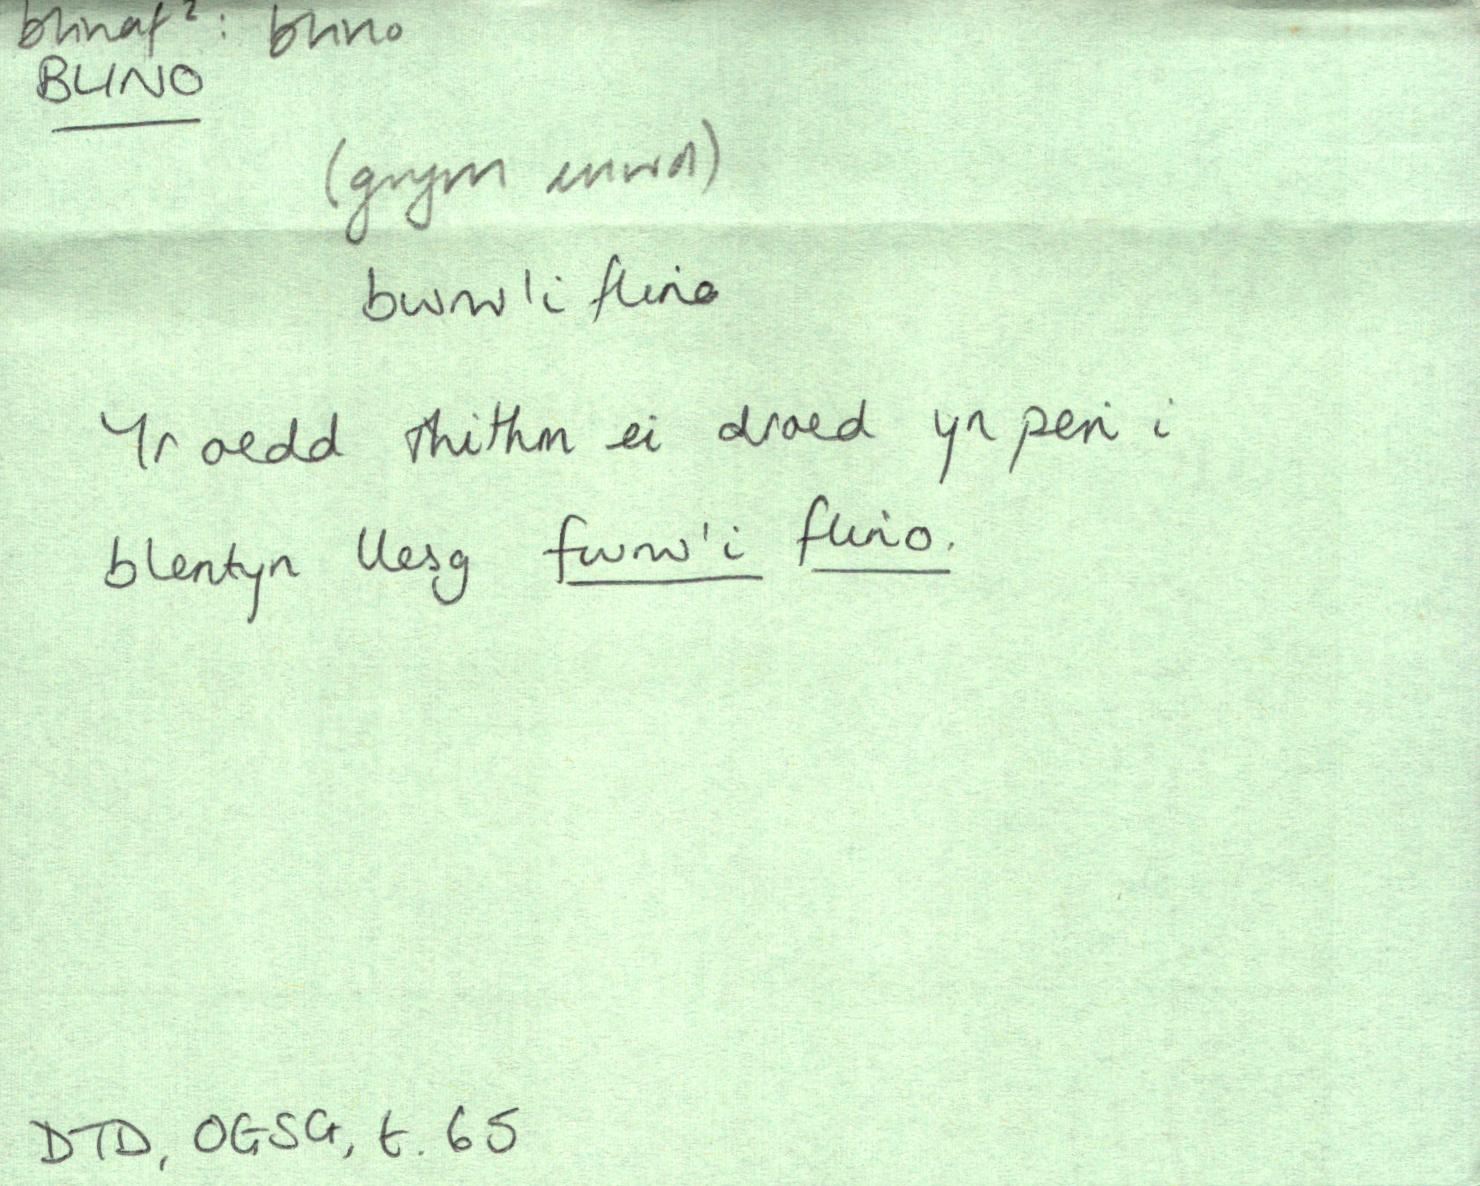 blinaf²: blino
BLINO
(grym enwol)
bwrw'i flino
Yr oedd rhithm ei droed yn peri i
blentyn llesg fwrw'i flino.
DTD, OGSG, t. 65